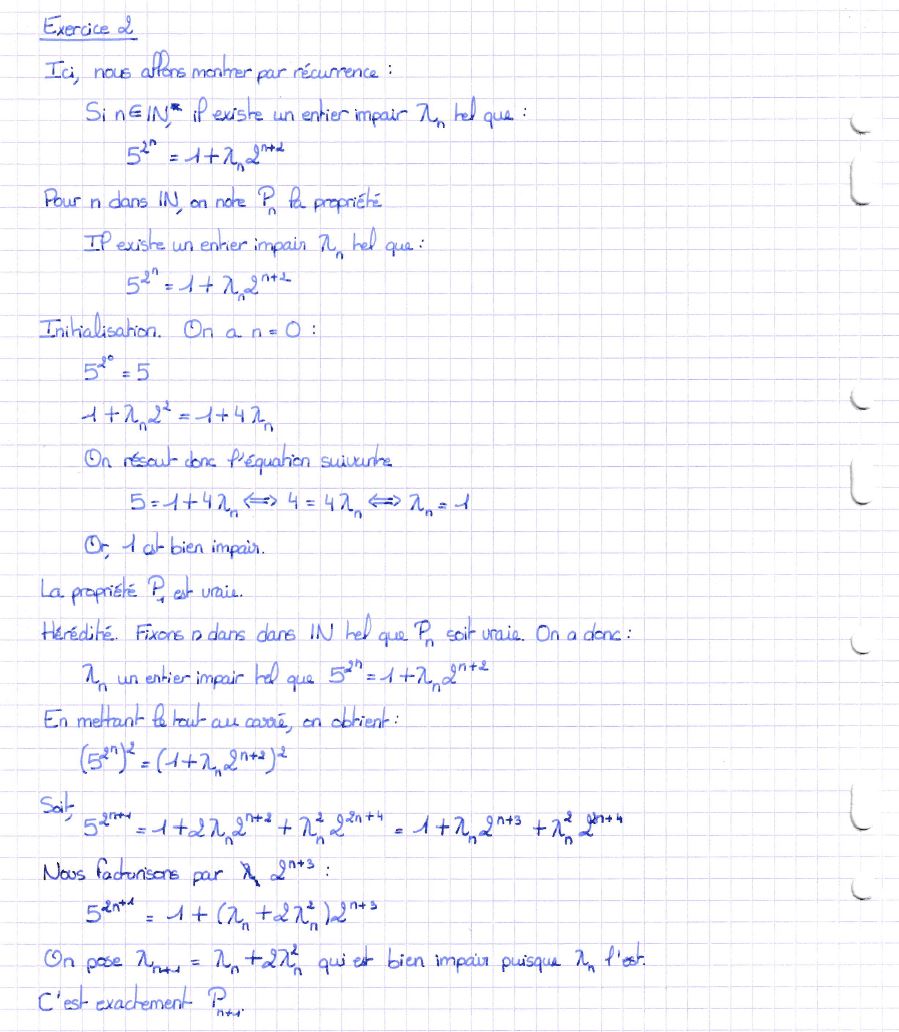 Exercice 2
Ici, nous allons montrer par récurrence :
Si n ∈ ℕ,* il existe un entier impair λₙ tel que :
5^{2^n} = 1 + λₙ 2^{n+2}
Pour n dans ℕ, on note Pₙ la propriété
Il existe un entier impair λₙ tel que :
5^{2^n} = 1 + λₙ 2^{n+2}
Initialisation. On a n = 0 :
5^{2^0} = 5
1 + λₙ 2^2 = 1 + 4λₙ
On résout donc l'équation suivante
5 = 1 + 4λₙ ⟺ 4 = 4λₙ ⟺ λₙ = 1
Or, 1 est bien impair.
La propriété P₁ est vraie.
Hérédité. Fixons n dans dans ℕ tel que Pₙ soit vraie. On a donc :
λₙ un entier impair tel que 5^{2^n} = 1 + λₙ 2^{n+2}
En mettant le tout au carré, on obtient :
(5^{2^n})^2 = (1 + λₙ 2^{n+2})^2
Soit, 5^{2^{n+1}} = 1 + 2λₙ 2^{n+2} + λₙ^2 2^{2n+4} = 1 + λₙ 2^{n+3} + λₙ^2 2^{2n+4}
Nous factorisons par 2^{n+3} :
5^{2n+1} = 1 + (λₙ + 2λₙ^2) 2^{n+3}
On pose λₙ₊₁ = λₙ + 2λₙ^2 qui est bien impair puisque λₙ l'est.
C'est exactement Pₙ₊₁.